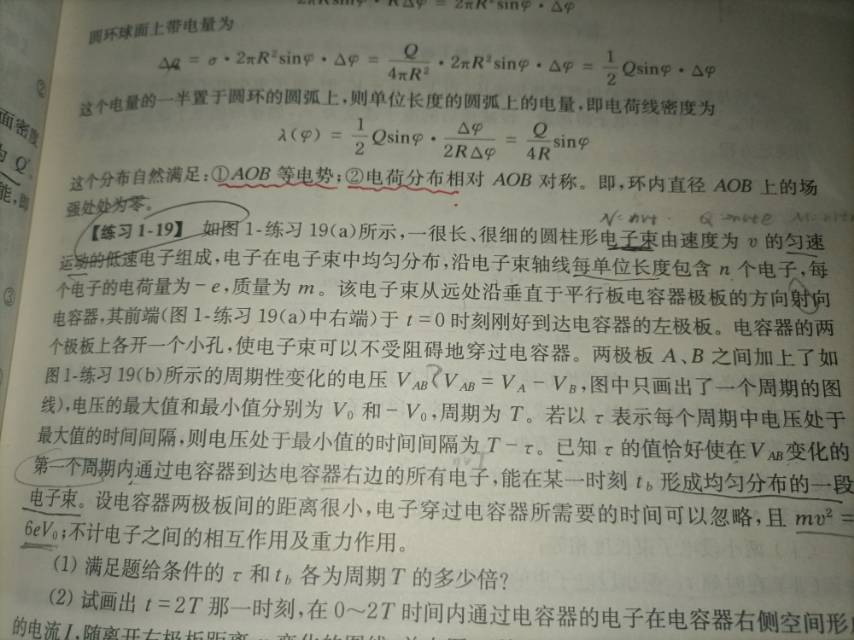 圆环球面上带电量为
Δq = σ · 2πR²sinφ · Δφ = Q/4πR² · 2πR²sinφ · Δφ = 1/2 Qsinφ · Δφ
这个电量的一半置于圆环的圆弧上,则单位长度的圆弧上的电量,即电荷线密度为
λ(φ) = 1/2 Qsinφ · Δφ/2RΔφ = Q/4R sinφ
这个分布自然满足:①AOB 等电势;②电荷分布相对 AOB 对称。即,环内直径 AOB 上的场
强处处为零。
【练习 1-19】 如图 1-练习 19(a)所示,一很长、很细的圆柱形电子束由速度为 v 的匀速
运动的低速电子组成,电子在电子束中均匀分布,沿电子束轴线每单位长度包含 n 个电子,每
个电子的电荷量为-e,质量为 m。该电子束从远处沿垂直于平行板电容器极板的方向射向
电容器,其前端(图 1-练习 19(a)中右端)于 t=0 时刻刚好到达电容器的左极板。电容器的两
个极板上各开一个小孔,使电子束可以不受阻碍地穿过电容器。两极板 A、B 之间加上了如
图 1-练习 19(b)所示的周期性变化的电压 V_AB(V_AB = V_A - V_B,图中只画出了一个周期的图
线),电压的最大值和最小值分别为 V₀ 和-V₀,周期为 T。若以 τ 表示每个周期中电压处于
最大值的时间间隔,则电压处于最小值的时间间隔为 T-τ。已知 τ 的值恰好使在 V_AB 变化的
第一个周期内通过电容器到达电容器右边的所有电子,能在某一时刻 t_b 形成均匀分布的一段
电子束。设电容器两极板间的距离很小,电子穿过电容器所需要的时间可以忽略,且 mv² =
6eV₀;不计电子之间的相互作用及重力作用。
(1) 满足题给条件的 τ 和 t_b 各为周期 T 的多少倍?
(2) 试画出 t=2T 那一时刻,在 0~2T 时间内通过电容器的电子在电容器右侧空间形
的电流 I,随离开右极板距离
面密度
为 Q
能,即
②
③